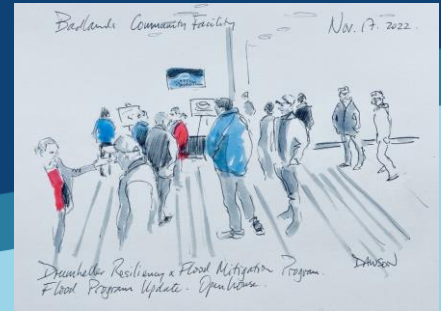 Badlands Community Facility
Nov. 17. 2022.
Drumheller Resiliency & Flood Mitigation Program.
Flood Program Update. Openhouse.
DAWSON